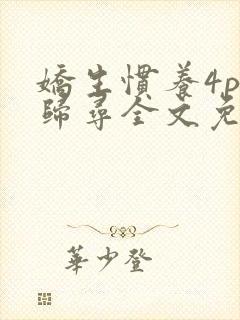 嬌生慣養4p
歸尋全文免
華少登